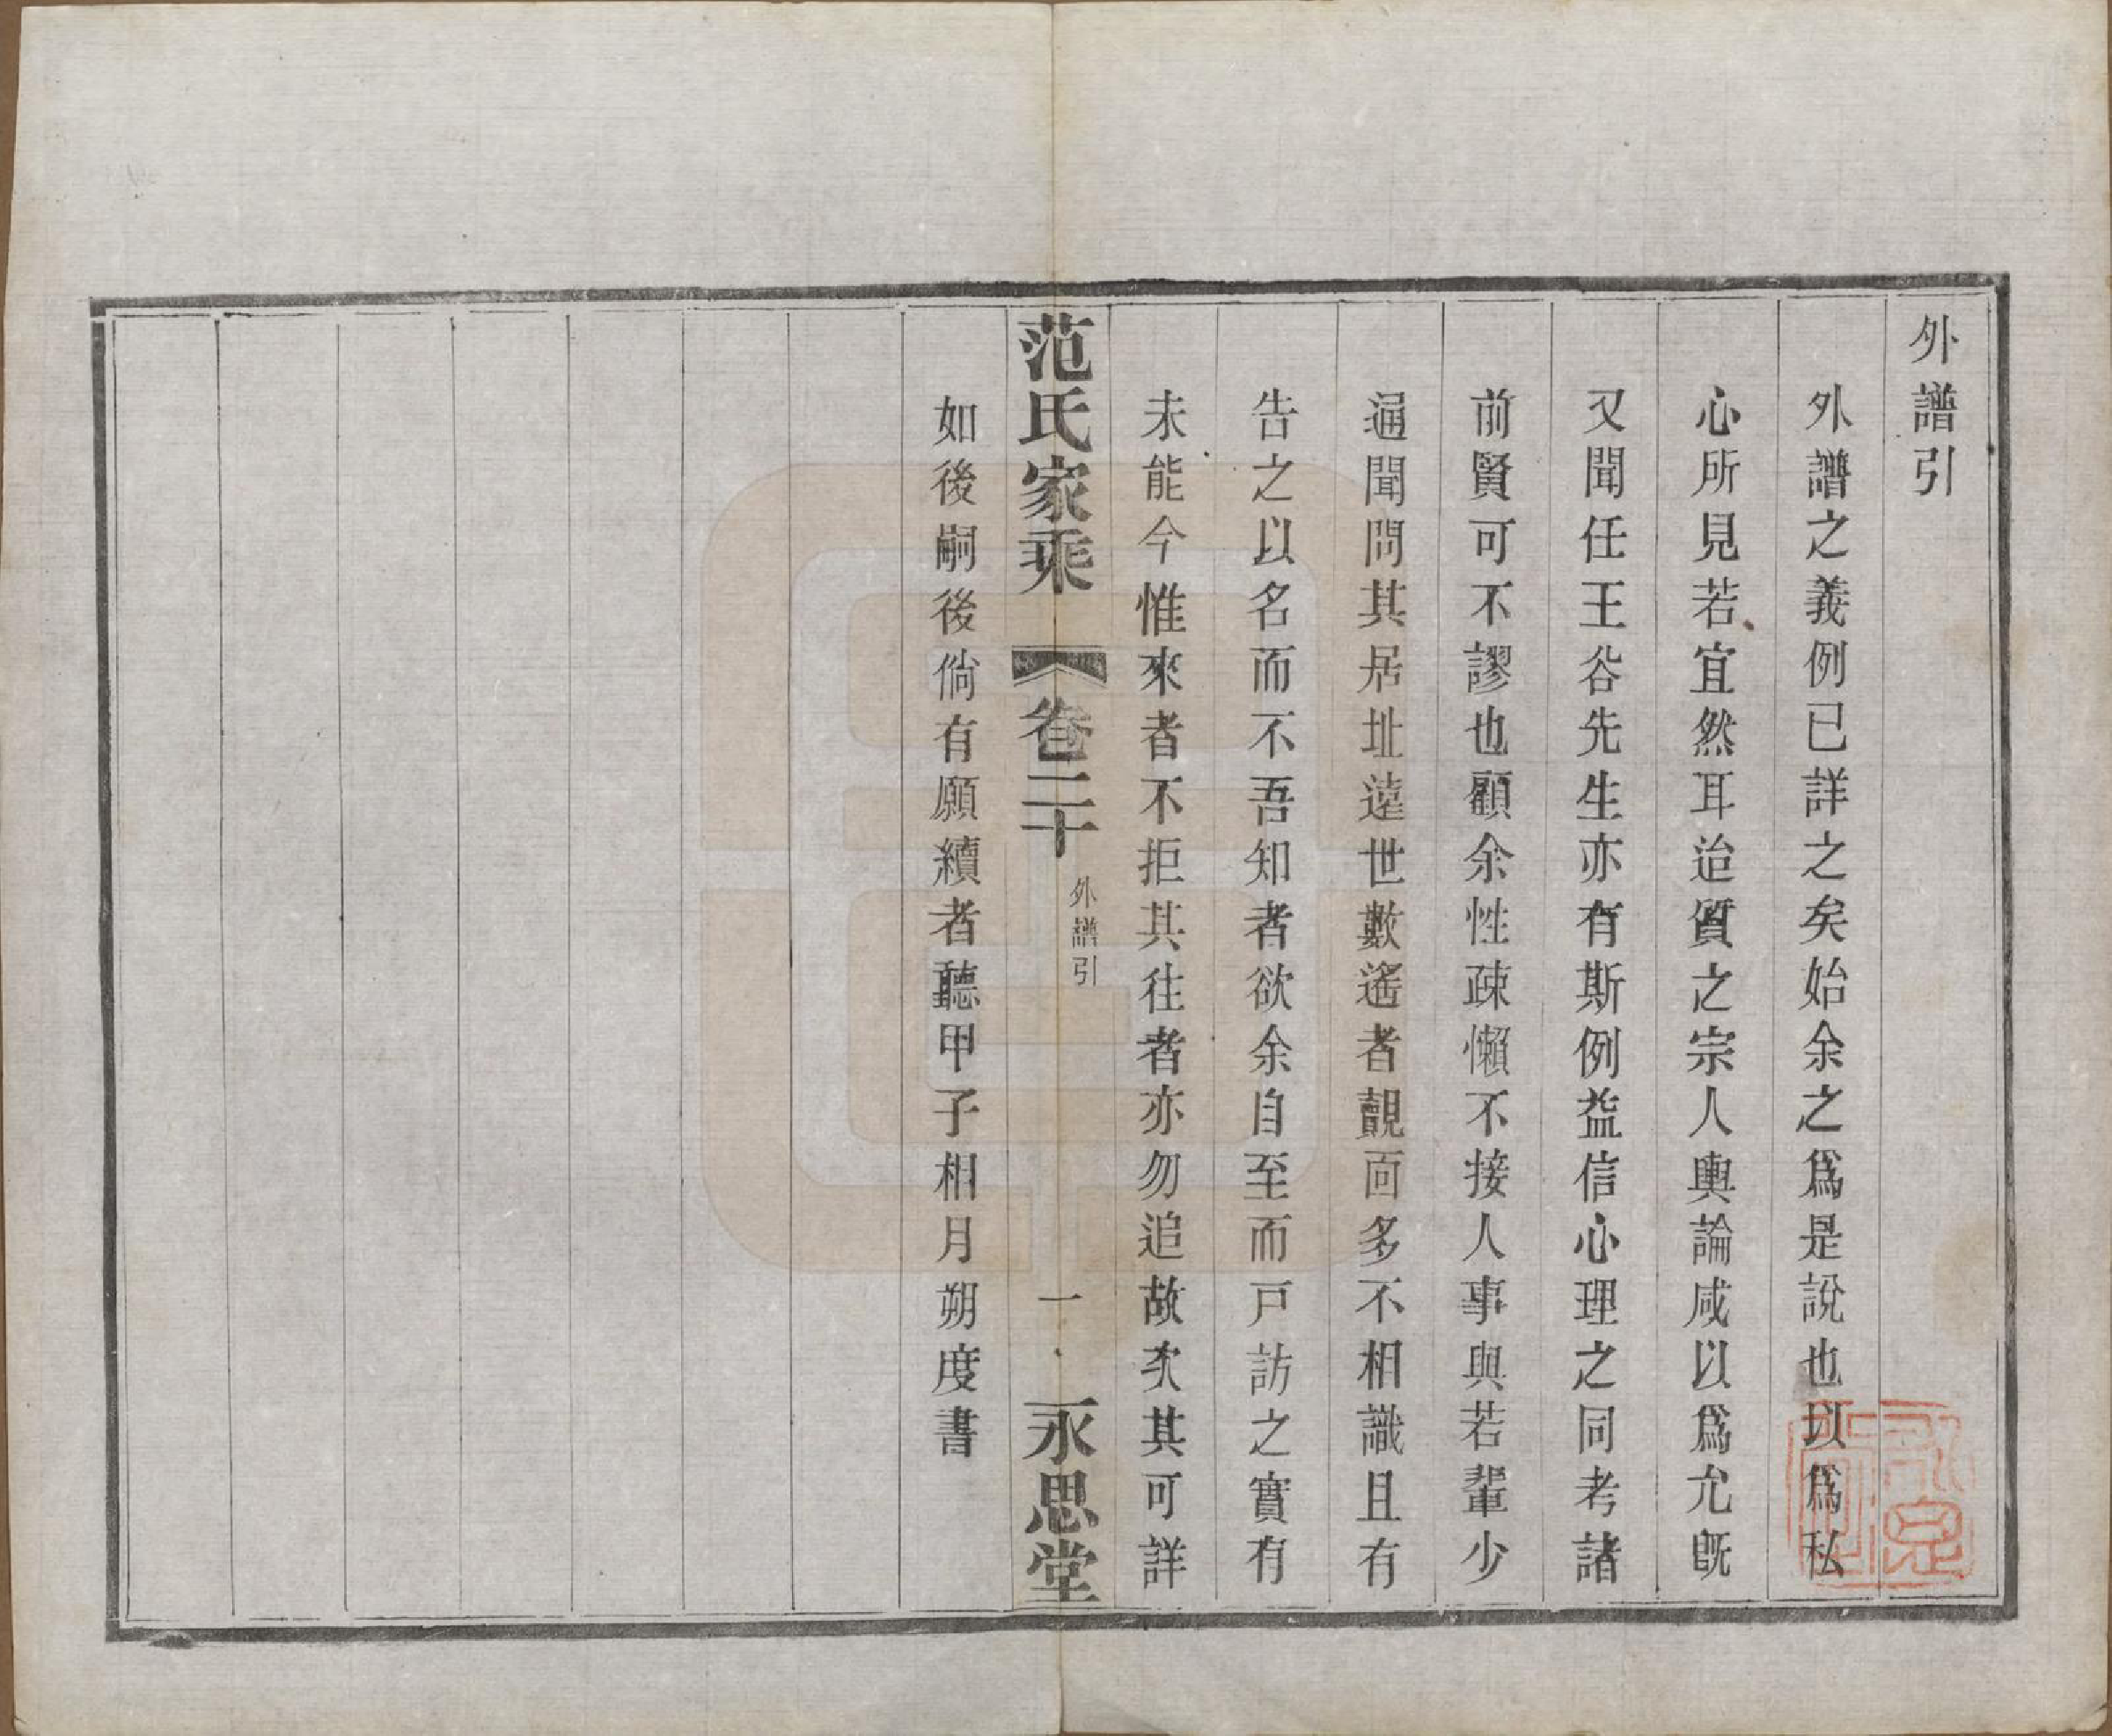 外譜引
外譜之義例已詳之矣始余之爲是說也以爲私
心所見若宜然耳迨質之宗人輿論咸以爲允既
又聞任王谷先生亦有斯例益信心理之同考諸
前賢可不謬也顧余性疎懶不接人事與若輩少
通聞問其居址遠世數遙者覿面多不相識且有
告之以名而不吾知者欲余自至而戸訪之實有
未能今惟來者不拒其往者亦勿追故次其可詳
范氏家乘 卷二十 外譜引 一 永思堂
如後嗣後倘有願續者聽甲子相月朔度書